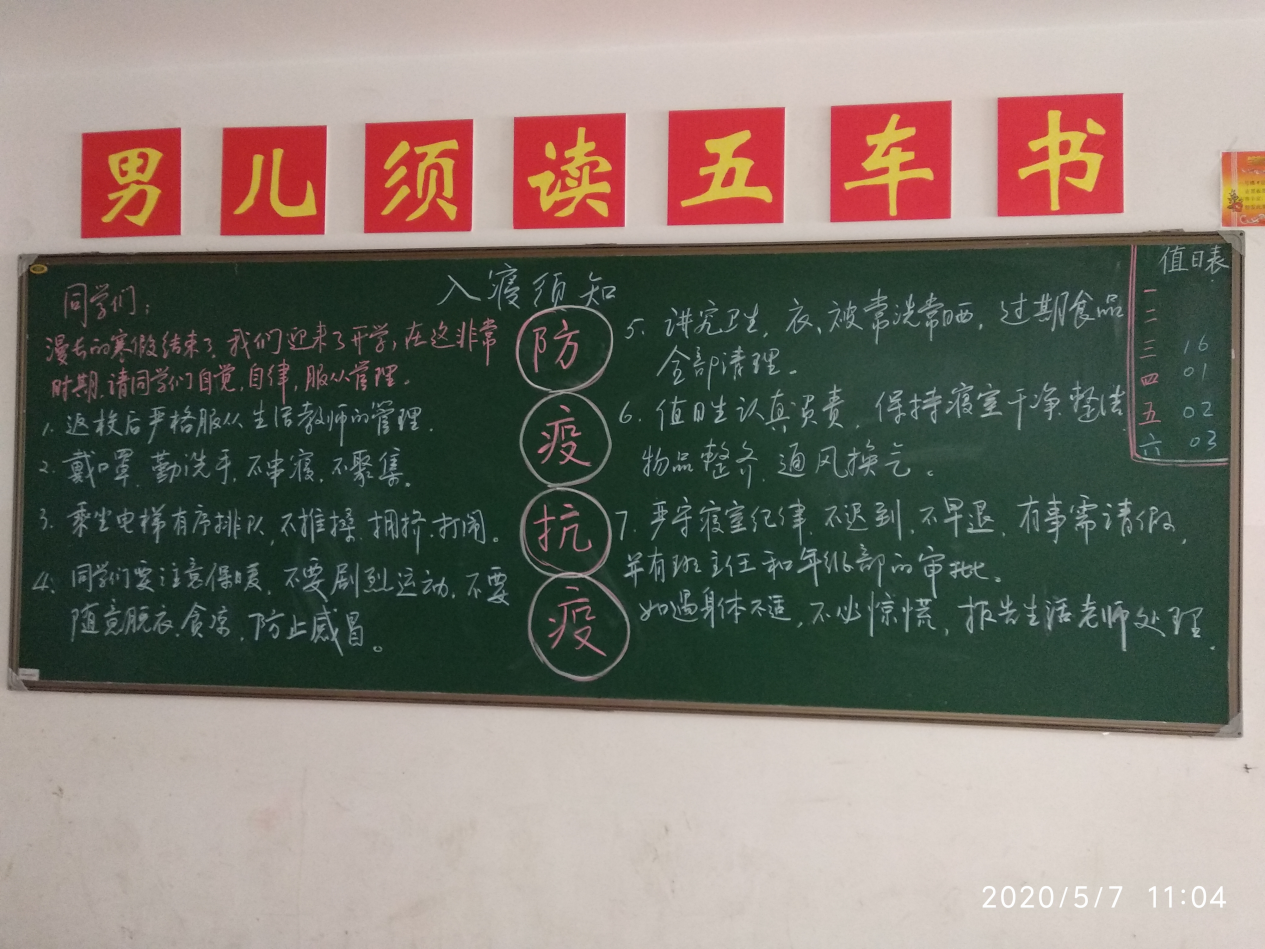 男儿须读五车书
入寝须知
同学们：
漫长的寒假结束了，我们迎来了开学，在这非常
时期，请同学们自觉，自律，服从管理。
1. 返校后严格服从生活教师的管理.
2. 戴口罩，勤洗手，不串寝，不聚集。
3. 乘坐电梯有序排队，不推搡、拥挤、打闹。
4. 同学们要注意保暖，不要剧烈运动，不要
随意脱衣、贪凉，防止感冒。
防
疫
抗
疫
5. 讲究卫生，衣、被常洗常晒，过期食品
全部清理。
6. 值日生认真负责，保持寝室干净，整洁
物品整齐，通风换气。
7. 严守寝室纪律，不迟到，不早退，有事需请假，
并有班主任和年级部的审批。
如遇身体不适，不必惊慌，报告生活老师处理.
值日表
一
二
三 16
四 01
五 02
六 03
2020/5/7 11:04